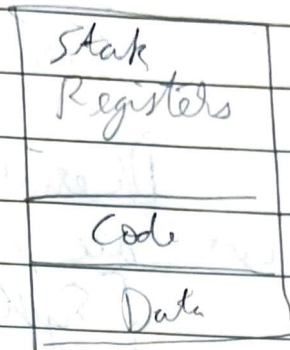 Stak
Registers
Code
Data